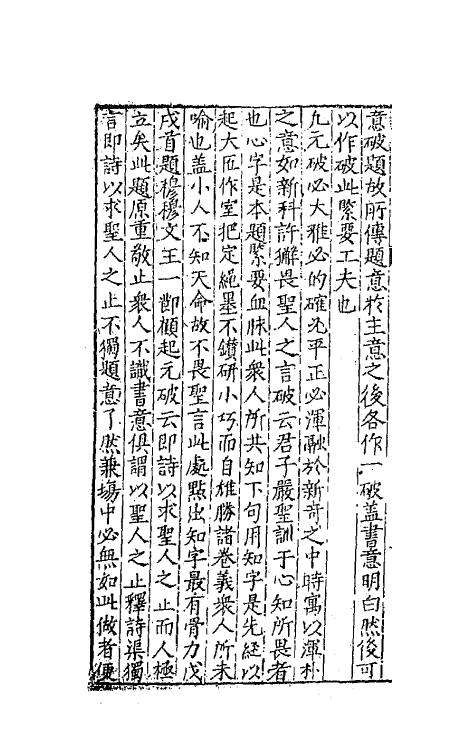 意破題放所傳題意於主意之後各作一破蓋書意明白然後可
以作破此緊要工夫也
凡元破必大雅必的確必平正必渾融於新奇之中時寓以渾朴
之意如新科許獬畏聖人之言破云君子嚴聖訓于心知所畏者
也心字是本題緊要血脉此衆人所共知下句用知字是先經以
起大匠作室把定繩墨不鑚研小巧而自雄勝諸卷義衆人所未
喻也盖小人不知天命故不畏聖言此處點出知字最有骨力戊
戌首題穆穆文王一節顧起元破云即詩以求聖人之止而人極
立矣此題原重敬止衆人不識書意俱謂以聖人之止釋詩渠獨
言即詩以求聖人之止不獨題意了然兼塲中必無如此做者便